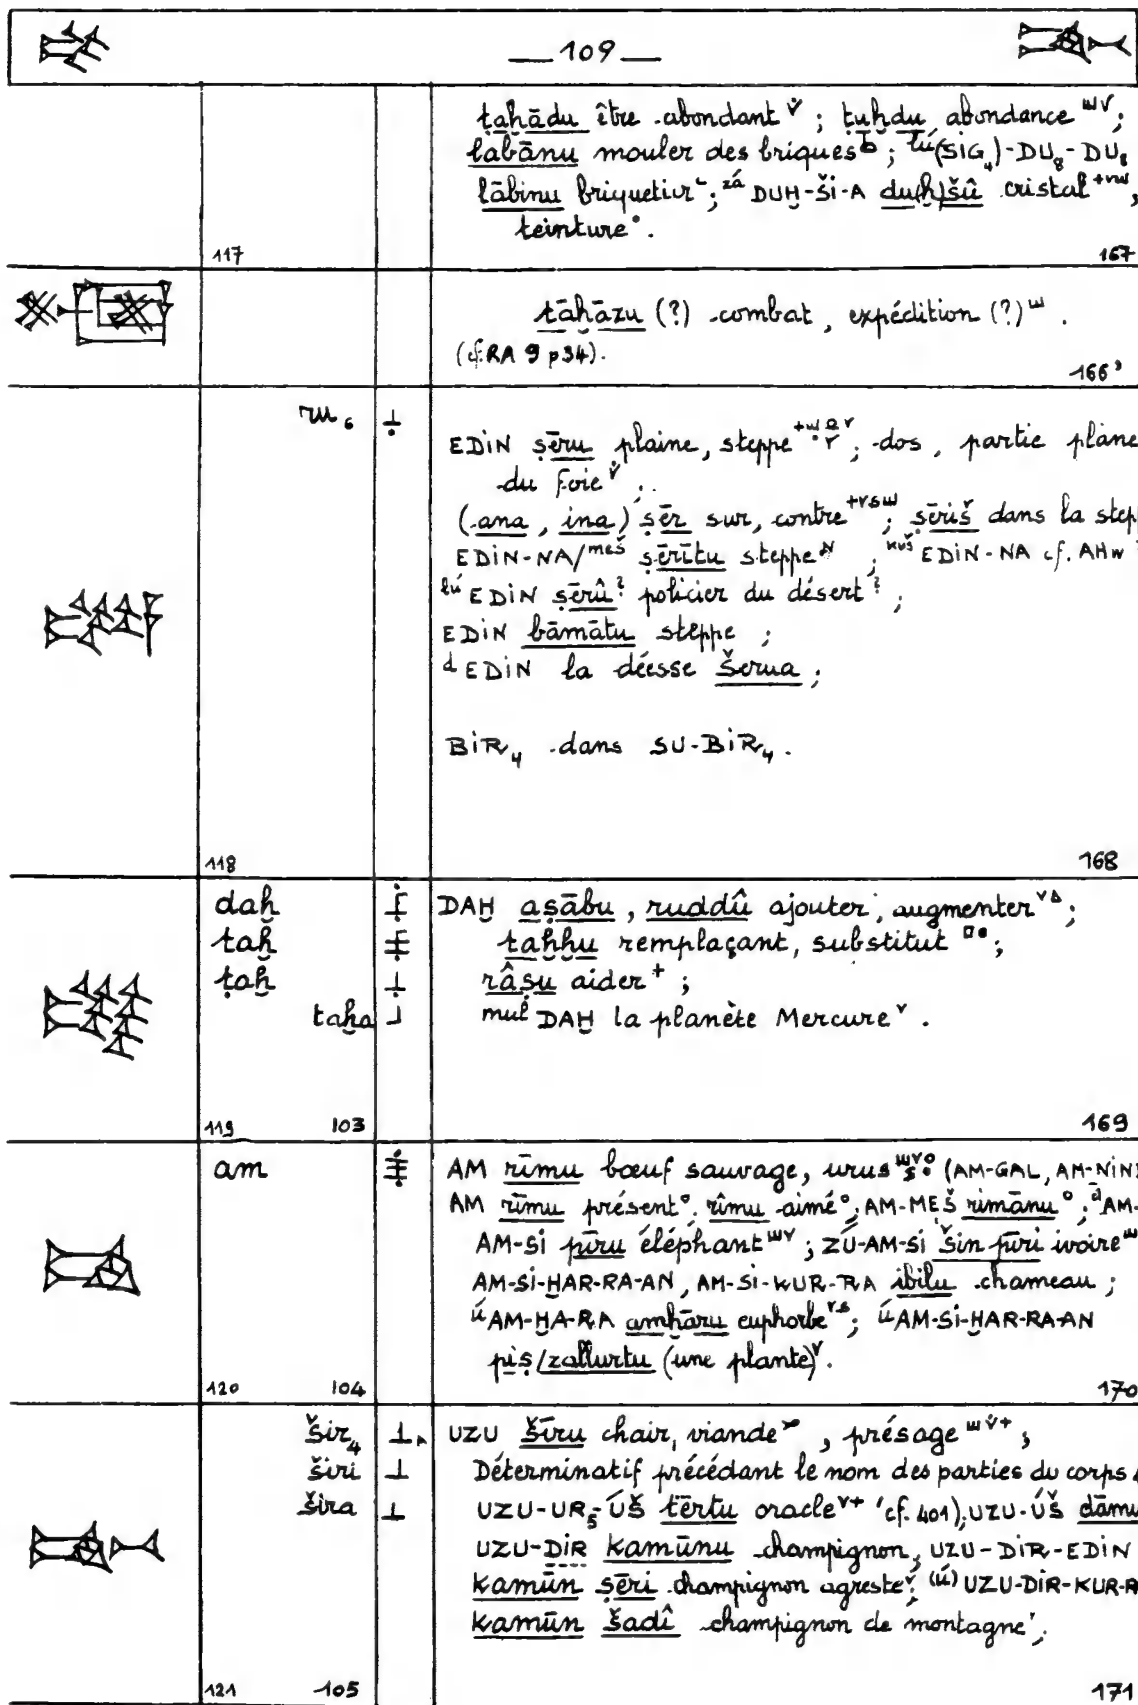 — 109 —
ṭaḫādu être abondant v̇ ; ṭuḫdu abondance ;
labānu mouler des briques b ; lú(SIG₄)-DU₈-DU₈
lābinu briquetier ; zá DUḪ-ŠI-A du(ḫ)šû cristal,
teinture °.
117 167
tāḫāzu (?) combat, expédition (?) ᵚ.
(cf. RA 9 p 34).
166'
ru₆
EDIN ṣēru plaine, steppe ; dos, partie plane
du foie v̇ ;
(ana, ina) ṣēr sur, contre ; ṣēriš dans la step
EDIN-NA/meš ṣērītu steppe ; kuš EDIN-NA cf. AHw
lú EDIN ṣērû? policier du désert ? ;
EDIN bāmātu steppe ;
d EDIN la déesse Šerua ;
BIR₄ dans SU-BIR₄.
118 168
daḫ DAḪ aṣābu, ruddû ajouter, augmenter ;
taḫ taḫḫu remplaçant, substitut ;
ṭaḫ râṣu aider + ;
taḫa mul DAḪ la planète Mercure v.
119 103 169
am AM rīmu bœuf sauvage, urus (AM-GAL, AM-NIN
AM rīmu présent °, rîmu aimé °; AM-MEŠ rimānu °; d AM-
AM-SI pīru éléphant ; ZÚ-AM-SI šin pīri ivoire
AM-SI-ḪAR-RA-AN, AM-SI-KUR-RA ibilu chameau ;
ú AM-ḪA-RA amḫāru euphorbe ; ú AM-SI-ḪAR-RA-AN
piṣ/zallurtu (une plante) v.
120 104 170
šir₄ UZU šīru chair, viande, présage ;
širi Déterminatif précédant le nom des parties du corps
šira UZU-UR₅-ÚŠ tērtu oracle v+ (cf. 401), UZU-ÚŠ dāmu
UZU-DIR kamūnu champignon, UZU-DIR-EDIN
kamūn ṣēri champignon agreste v, (ú) UZU-DIR-KUR-R
kamūn šadî champignon de montagne ;
121 105 171